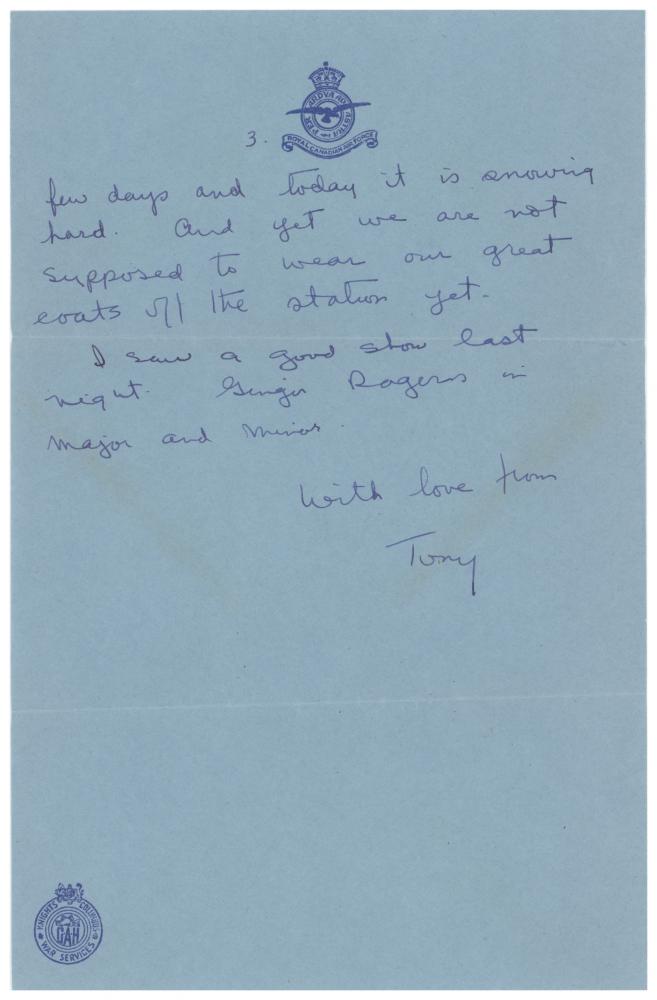 3.
PER ARDUA AD ASTRA
ROYAL CANADIAN AIR FORCE
few days and today it is snowing
hard. And yet we are not
supposed to wear our great
coats off the station yet.
I saw a good show last
night. Ginger Rogers in
Major and Minor.
With love from
Tony
KNIGHTS COLUMBUS
CAH
WAR SERVICES